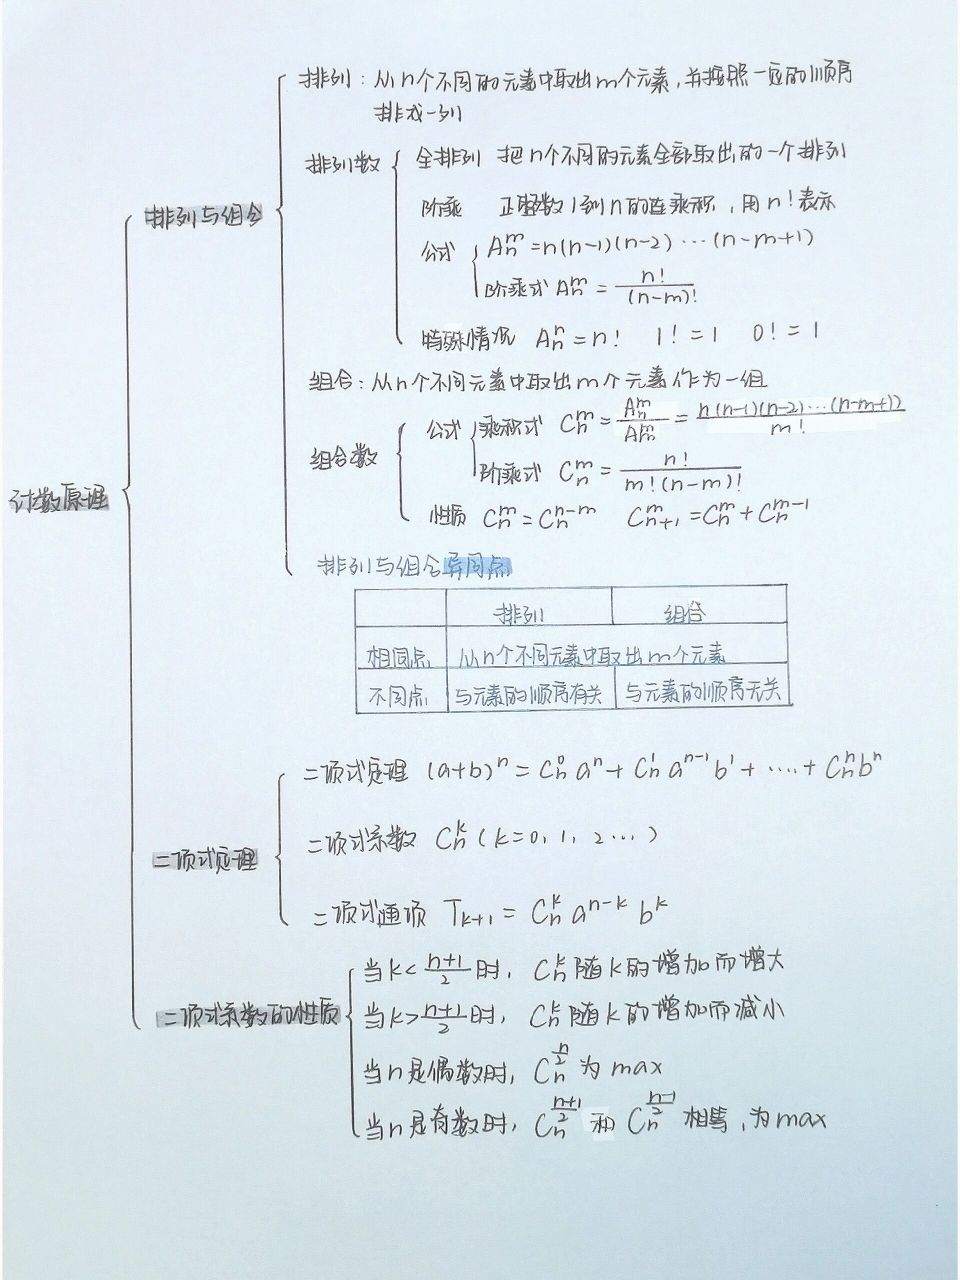 排列：从n个不同的元素中取出m个元素，并按照一定的顺序
排成一列
排列数
全排列 把n个不同的元素全部取出的一个排列
阶乘 正整数1到n的连乘积，用n!表示
排列与组合
公式
A_n^m=n(n-1)(n-2)…(n-m+1)
阶乘式 A_n^m=n!/(n-m)!
特殊情况 A_n^n=n! 1!=1 0!=1
组合：从n个不同元素中取出m个元素作为一组
组合数
公式
乘积式 C_n^m=A_n^m/A_m^m=n(n-1)(n-2)…(n-m+1)/m!
阶乘式 C_n^m=n!/m!(n-m)!
计数原理
性质 C_n^m=C_n^{n-m} C_{n+1}^m=C_n^m+C_n^{m-1}
排列与组合异同点
排列 组合
相同点 从n个不同元素中取出m个元素
不同点 与元素的顺序有关 与元素的顺序无关
二项式定理 (a+b)^n=C_n^0 a^n+C_n^1 a^{n-1}b^1+….+C_n^n b^n
二项式系数 C_n^k(k=0,1,2…)
二项式定理
二项式通项 T_{k+1}=C_n^k a^{n-k} b^k
当k<(n+1)/2时，C_n^k随k的增加而增大
二项式系数的性质
当k>(n+1)/2时，C_n^k随k的增加而减小
当n是偶数时，C_n^{n/2}为max
当n是奇数时，C_n^{(n+1)/2}和C_n^{(n-1)/2}相等，为max